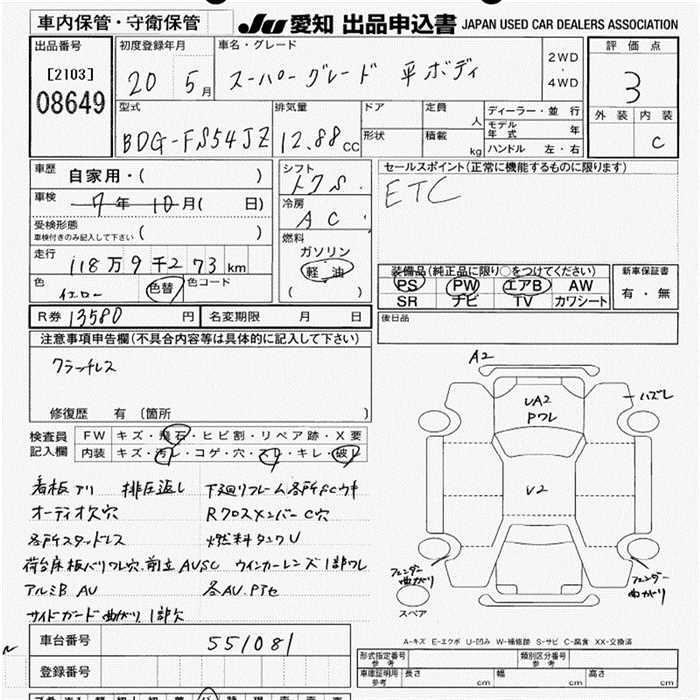 車内保管・守衛保管
JU 愛知 出品申込書 JAPAN USED CAR DEALERS ASSOCIATION
出品番号
[2103]
08649
初度登録年月
20 5月
車名・グレード
スーパーグレード 平ボディ
2WD
・
4WD
評価点
3
外装 内装
C
型式
BDG-FS54JZ
排気量
12.88 CC
ドア
形状
定員
人
積載
kg
ディーラー・並行
モデル年式 年
ハンドル 左・右
車歴 自家用・( )
車検 7年 10月( 日)
受検形態
車検付きのみ記入して下さい ( )
走行 118万9千273km
色 イエロー 色替 色コード
R券 13580 円 名変期限 月 日
シフト
冷房
AC
燃料
ガソリン
軽油
( )
セールスポイント(正常に機能するものに限ります)
ETC
装備品(純正品に限り○をつけてください)
PS PW エアB AW
SR ナビ TV カワシート
新車保証書
有・無
後日品
注意事項申告欄(不具合内容等は具体的に記入して下さい)
クラッチレス
修復歴 有 (箇所 )
検査員記入欄
FW キズ・飛石・ヒビ割・リペア跡・X要
内装 キズ・汚レ・コゲ・穴・スレ・キレ・破レ
看板アリ 排圧返し 下廻りフレーム各所SCサキ
オーディオ欠穴 RクロスメンバーC穴
各所スタッドレス 燃料タンクU
荷台床板バリワレ穴、前立AVSC ウインカーレンズ1部ワレ
アルミB AV 各AV、Pアセ
サイドガード曲がり1部欠
A2
UA2
Pワレ
ハズレ
V2
フェンダー曲がり
フェンダー曲がり
スペア
A-キズ E-エクボ U-凹み W-補修跡 S-サビ C-腐食 XX-交換済
車台番号 551081
登録番号
形式指定番号 参考
類別区分番号 参考
車庫証明用 参考
長さ cm 幅 cm 高さ cm